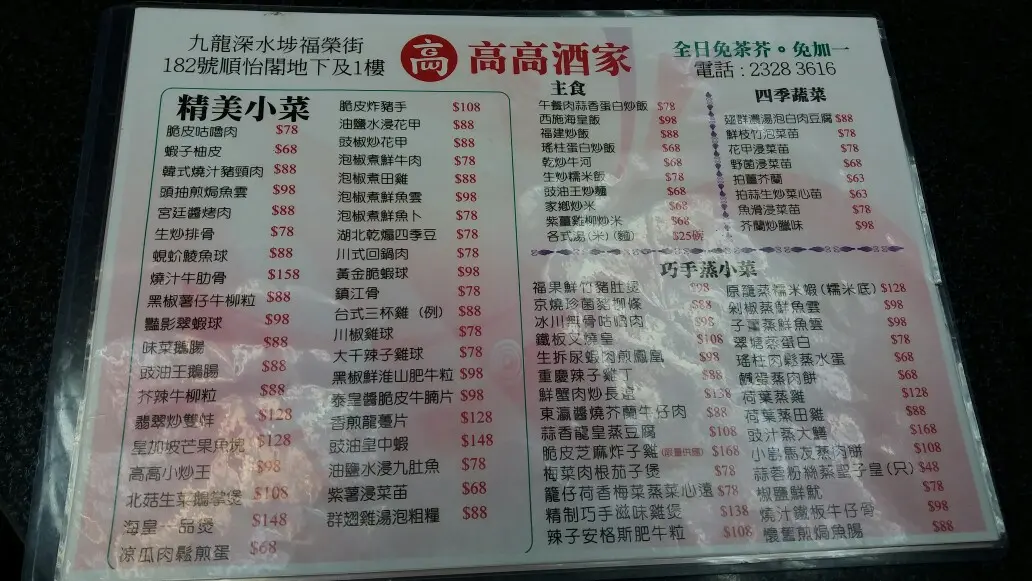 九龍深水埗福榮街
182號順怡閣地下及1樓
高
高高酒家
全日免茶芥。免加一
電話：2328 3616
精美小菜
脆皮咕嚕肉 $78
蝦子柚皮 $68
韓式燒汁豬頸肉 $88
頭抽煎焗魚雲 $98
宮廷醬烤肉 $88
生炒排骨 $78
蜆蚧鯪魚球 $88
燒汁牛肋骨 $158
黑椒薯仔牛柳粒 $88
豔影翠蝦球 $98
味菜鵝腸 $88
豉油王鵝腸 $88
芥辣牛柳粒 $88
翡翠炒雙蚌 $128
星加坡芒果魚塊 $128
高高小炒王 $98
北菇生菜鵝掌煲 $108
海皇一品煲 $148
涼瓜肉鬆煎蛋 $68
脆皮炸豬手 $108
油鹽水浸花甲 $88
豉椒炒花甲 $88
泡椒煮鮮牛肉 $78
泡椒煮田雞 $88
泡椒煮鮮魚雲 $98
泡椒煮鮮魚卜 $78
湖北乾煸四季豆 $78
川式回鍋肉 $78
黃金脆蝦球 $98
鎮江骨 $78
台式三杯雞（例） $88
川椒雞球 $78
大千辣子雞球 $78
黑椒鮮淮山肥牛粒 $98
泰皇醬脆皮牛腩片 $98
香煎龍躉片 $128
豉油皇中蝦 $148
油鹽水浸九肚魚 $78
紫薯浸菜苗 $68
群翅雞湯泡粗糧 $88
主食
午餐肉蒜香蛋白炒飯 $78
西施海皇飯 $98
福建炒飯 $88
瑤柱蛋白炒飯 $68
乾炒牛河 $68
生炒糯米飯 $78
豉油王炒麵 $68
家鄉炒米 $68
紫薑雞柳炒米 $68
各式湯(米)(麵) $25碗
四季蔬菜
濃湯泡白肉豆腐 $88
鮮枝竹泡菜苗 $78
花甲浸菜苗 $78
野菌浸菜苗 $68
拍薑芥蘭 $63
拍蒜生炒菜心苗 $63
魚滑浸菜苗 $78
芥蘭炒臘味 $98
巧手蒸小菜
福果鮮竹豬肚煲 $98
京燒珍菌豬柳條 $88
冰川無骨咕嚕肉 $98
鐵板叉燒皇 $108
生拆尿蝦肉煎鳳凰 $98
重慶辣子雞丁 $88
鮮蟹肉炒長遠 $138
東瀛醬燒芥蘭牛仔肉 $88
蒜香龍皇蒸豆腐 $108
脆皮芝麻炸子雞(限量供應) $168
梅菜肉根茄子煲 $78
籠仔荷香梅菜蒸菜心遠 $78
精制巧手滋味雞煲 $138
辣子安格斯肥牛粒 $108
原籠蒸糯米蝦(糯米底) $128
剁椒蒸鮮魚雲 $98
子薑蒸鮮魚雲 $98
翠塘蒸蛋白 $78
瑤柱肉鬆蒸水蛋 $68
鹹蛋蒸肉餅 $68
荷葉蒸雞 $128
荷葉蒸田雞 $88
豉汁蒸大鱔 $168
小岩馬友蒸肉餅 $108
蒜蓉粉絲蒸聖子皇(只) $48
椒鹽鮮魷 $78
燒汁鐵板牛仔骨 $98
懷舊煎焗魚腸 $88